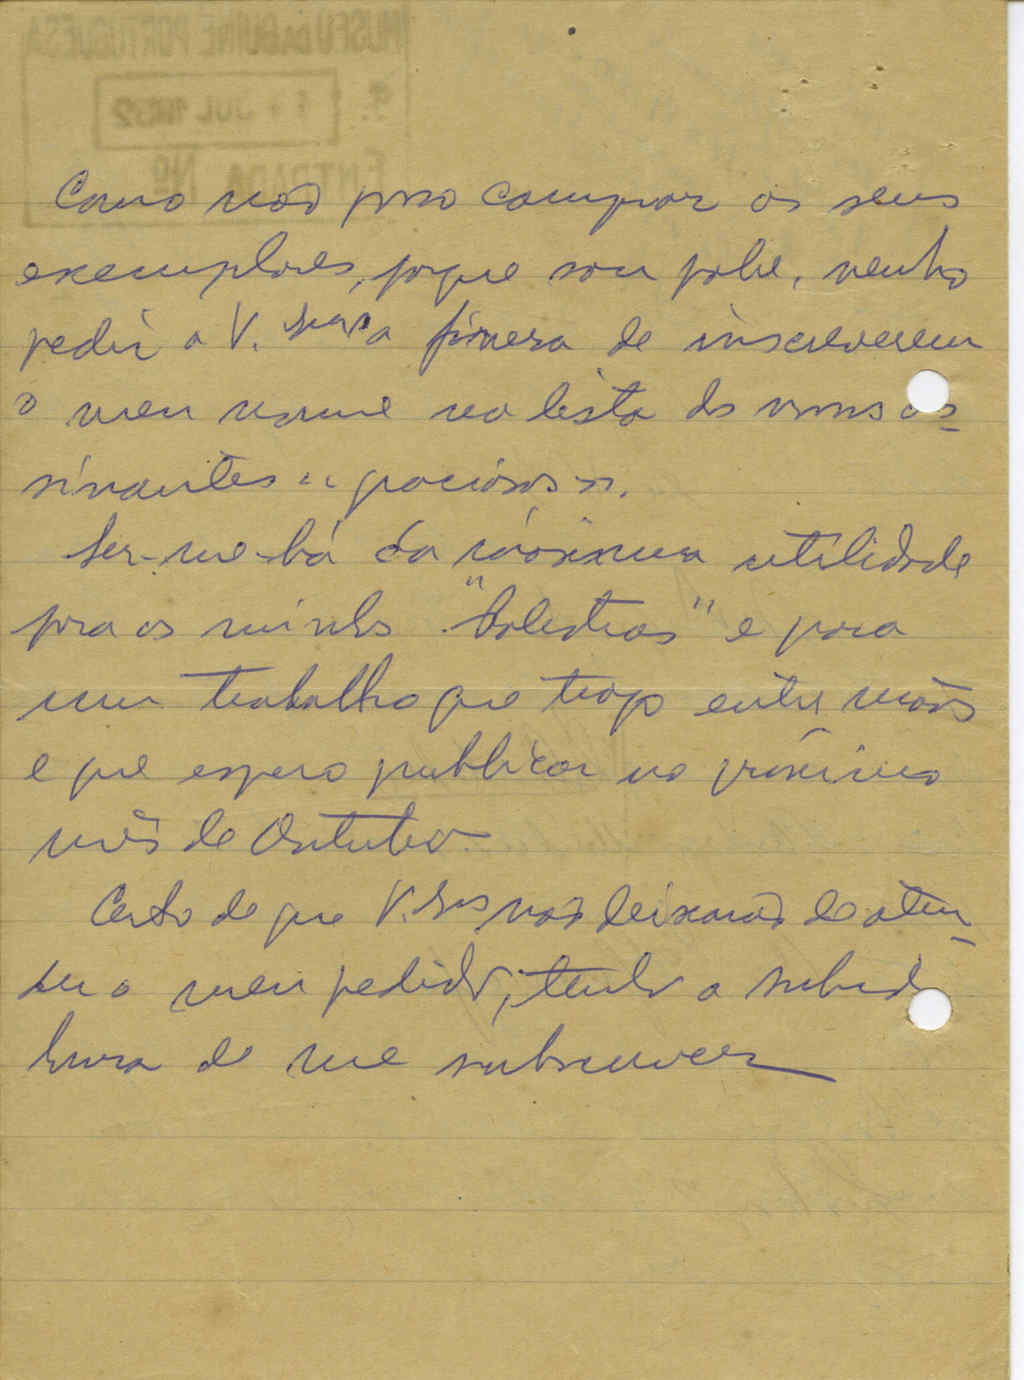 MUSEU DA GUINÉ PORTUGUESA
JUL 1952
ENTRADA Nº
Como não posso comprar os seus
exemplares, porque sou pobre, venho
pedir a V. a fineza de inscreverem
o meu nome na lista dos vossos as-
sinantes «graciosos».
Ser-me-há da máxima utilidade
para as minhas "Palestras" e para
um trabalho que trago entre mãos
e que espero publicar no próximo
mês de Outubro.
Certo de que V. Sas não deixarão de aten-
der o meu pedido, tenho a subida
honra de me subscrever